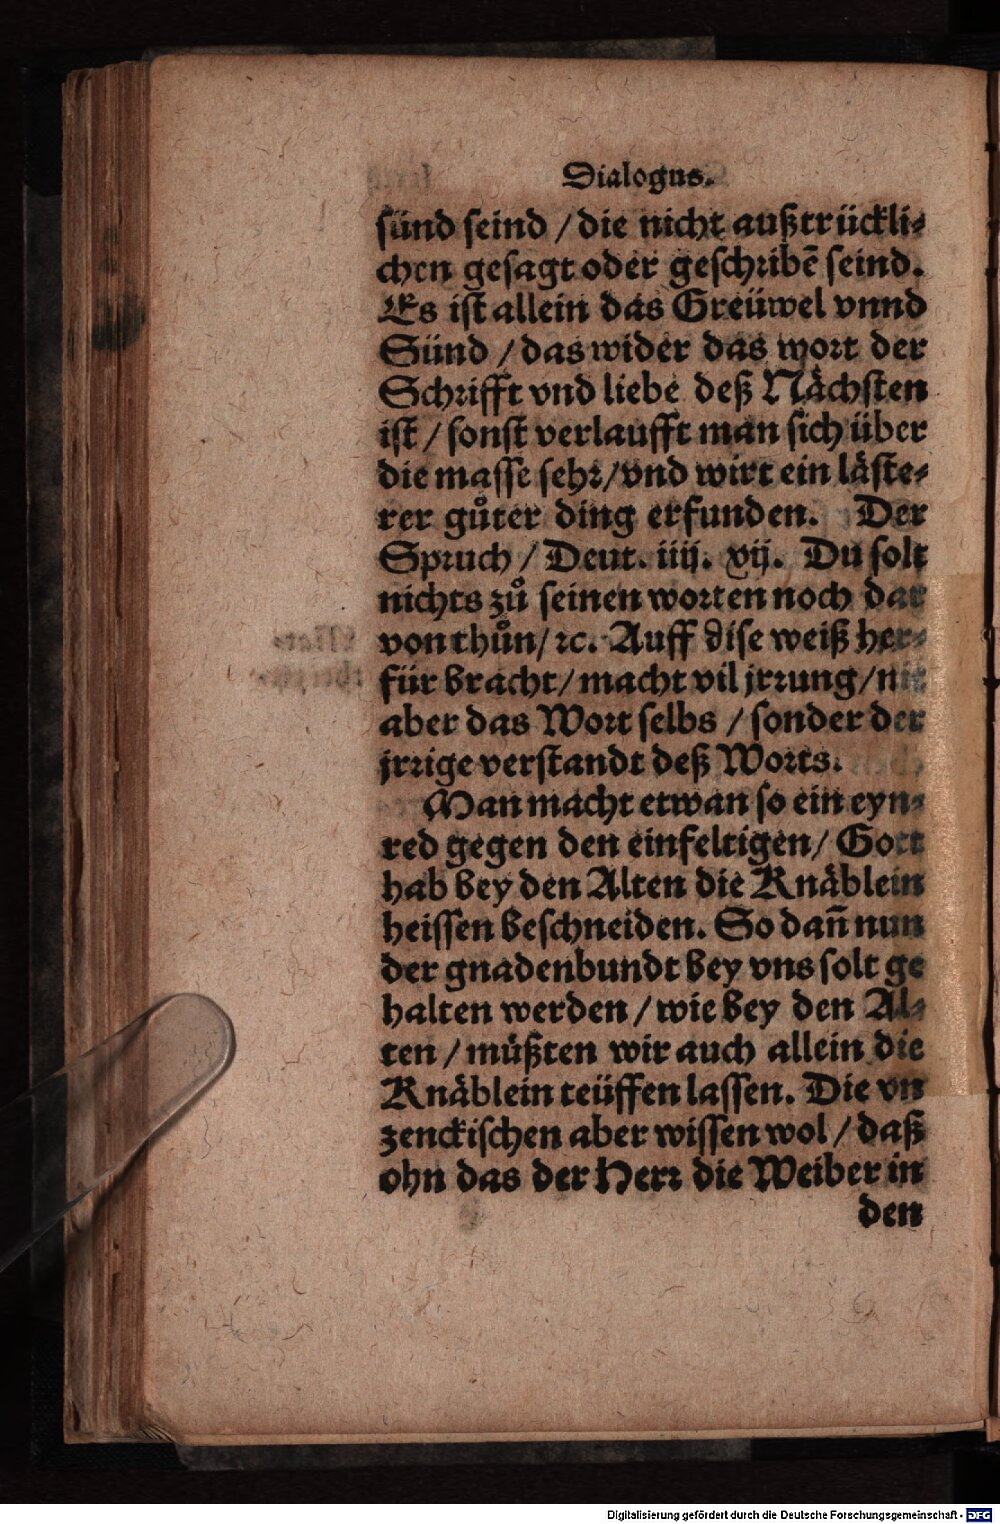 Dialogus.
sünd seind / die nicht außtrückli⸗
chen gesagt oder geschribē seind.
Es ist allein das Greüwel vnnd
Sünd / das wider das wort der
Schrifft vnd liebe deß Nächsten
ist / sonst verlaufft man sich über
die masse sehr / vnd wirt ein läste⸗
rer gůter ding erfunden. Der
Spruch / Deut. iiij. vij. Du solt
nichts zů seinen worten noch dar
von thůn / ꝛc. Auff dise weiß her⸗
für bracht / macht vil jrrung / nit
aber das Wort selbs / sonder der
jrrige verstandt deß Worts.
Man macht etwan so ein eyn⸗
red gegen den einfeltigen / Gott
hab bey den Alten die Knäblein
heissen beschneiden. So dañ nun
der gnadenbundt bey vns solt ge
halten werden / wie bey den Al⸗
ten / müßten wir auch allein die
Knäblein teüffen lassen. Die vn
zenckischen aber wissen wol / daß
ohn das der Herr die Weiber in
den
Digitalisierung gefördert durch die Deutsche Forschungsgemeinschaft - DFG